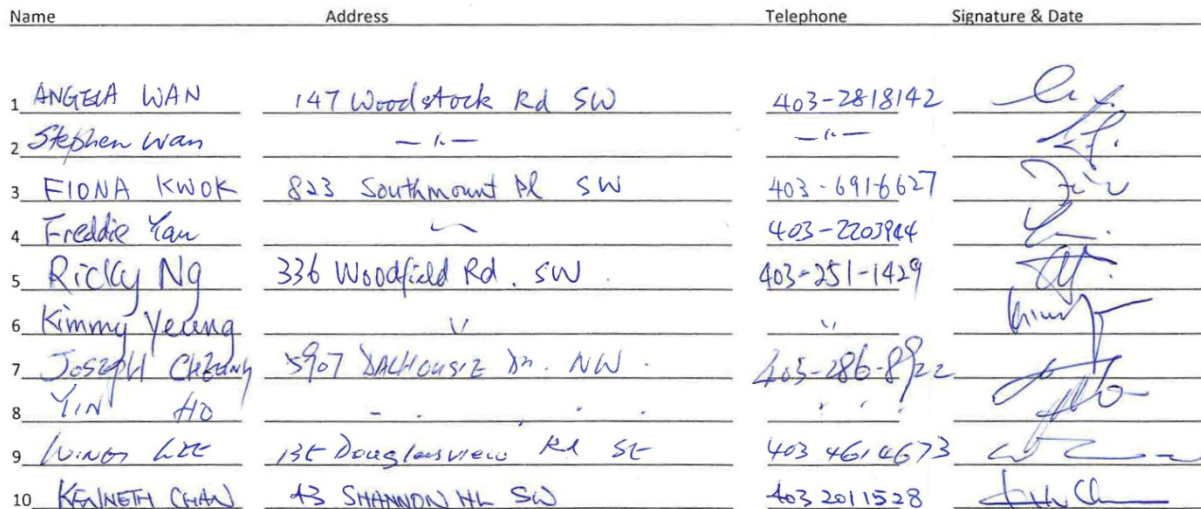 Name Address Telephone Signature & Date
1 ANGELA WAN 147 Woodstock Rd SW 403-2818142
2 Stephen Wan —〃— —〃—
3 FIONA KWOK 823 Southmount Pl SW 403-6916627
4 Freddie Yau 403-2203944
5 Ricky Ng 336 Woodfield Rd. SW. 403-251-1429
6 Kimmy Yeung 〃 〃
7 JOSEPH CHEUNG 5907 DALHOUSIE Dr. NW. 403-286-8922
8 YIN HO
9 LEE Douglasview Rd SE 403 461 4673
10 KENNETH CHAN 43 SHANNON HL SW 403 2011528